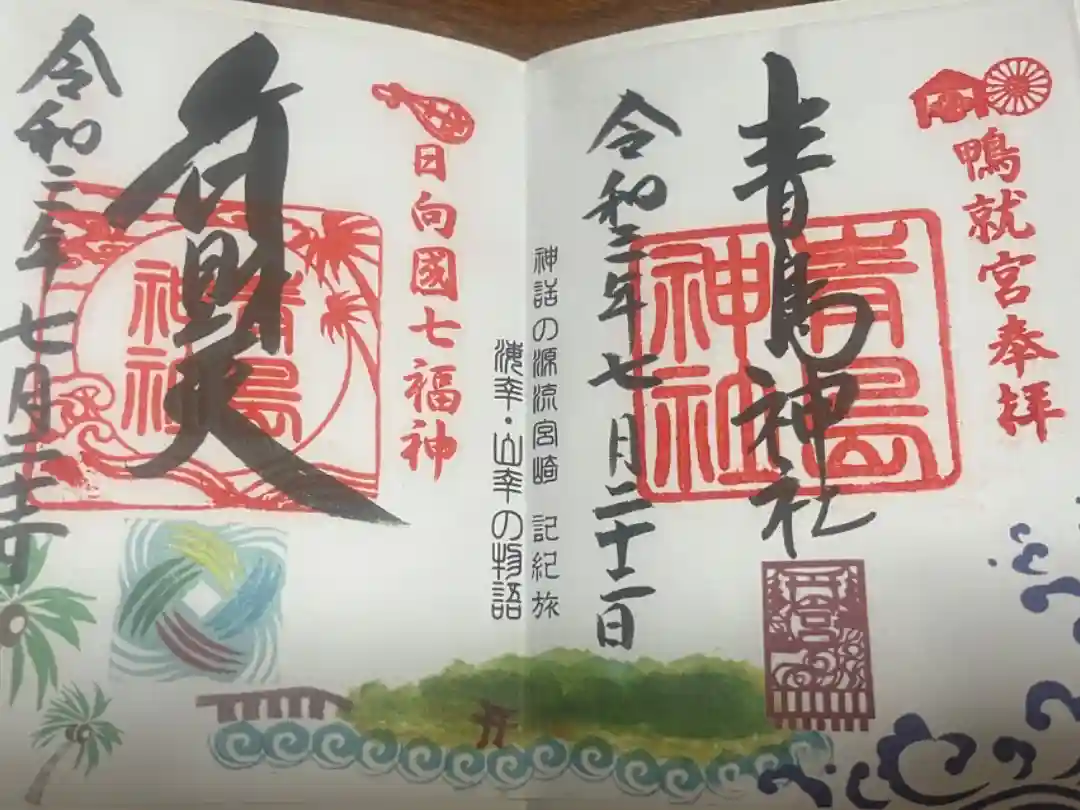 鴨就宮奉拝
青島神社
青島
神社
令和三年七月二十二日
神話の源流宮崎 記紀旅
海幸・山幸の物語
日向國七福神
弁財天
青島
神社
令和三年七月二十